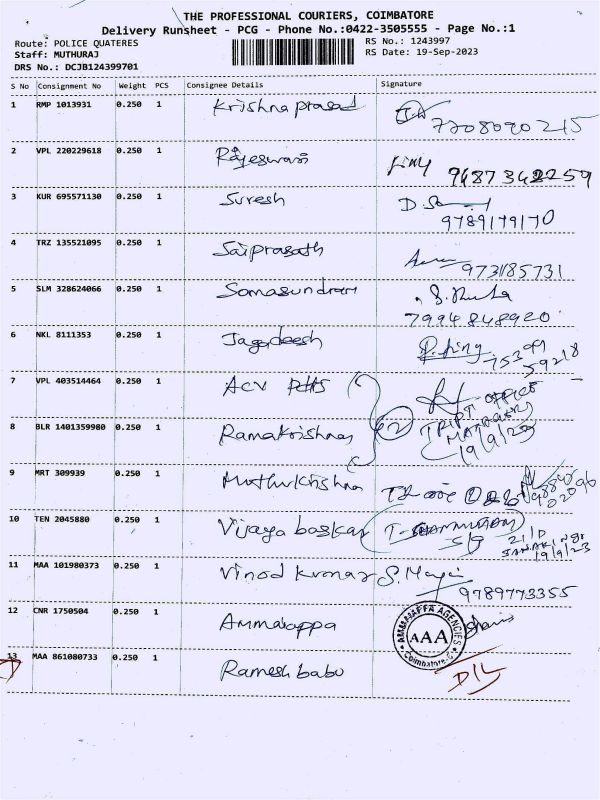 THE PROFESSIONAL COURIERS, COIMBATORE
Delivery Runsheet - PCG - Phone No.:0422-3505555 - Page No.:1
Route: POLICE QUATERES
RS No.: 1243997
Staff: MUTHURAJ
RS Date: 19-Sep-2023
DRS No.: DCJB124399701
S No Consignment No Weight PCS Consignee Details Signature
1 RMP 1013931 0.250 1 Krishna prasad
7708090215
2 VPL 220229618 0.250 1 Rajeswari
9487342259
3 KUR 695571130 0.250 1 Suresh
9789179170
4 TRZ 135521095 0.250 1 Saiprasath
9731185731
5 SLM 328624066 0.250 1 Somasundram
7994848920
6 NKL 8111353 0.250 1 Jagadeesh
75399
59218
7 VPL 403514464 0.250 1 ACV
OFFICE
8 BLR 1401359980 0.250 1 Ramakrishnan 2
19/9/23
9 MRT 309939 0.250 1 Muthukrishna
10 TEN 2045880 0.250 1 Vijaya baskar
S/G
19/9/23
11 MAA 101980373 0.250 1 Vinod kumar
9789773355
12 CNR 1750504 0.250 1 Ammaiappa
AMMAIAPPA AGENCIES
AAA
Coimbatore
13 MAA 861080733 0.250 1 Ramesh babu
D/L